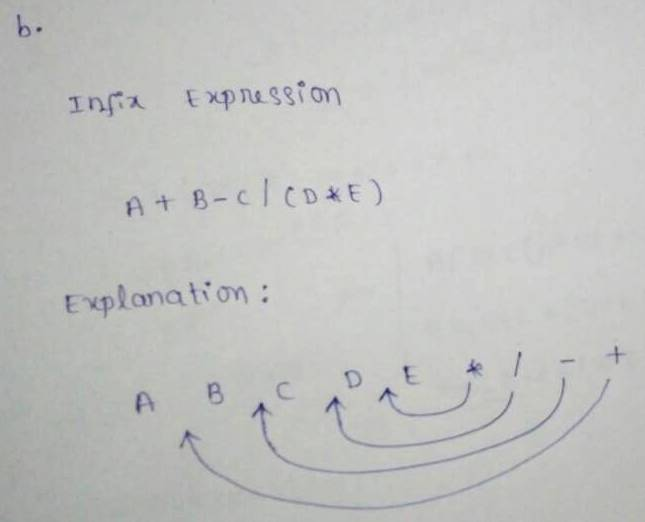 b.
Infix Expression
A + B - C / (D * E)
Explanation :
A B C D E * / - +